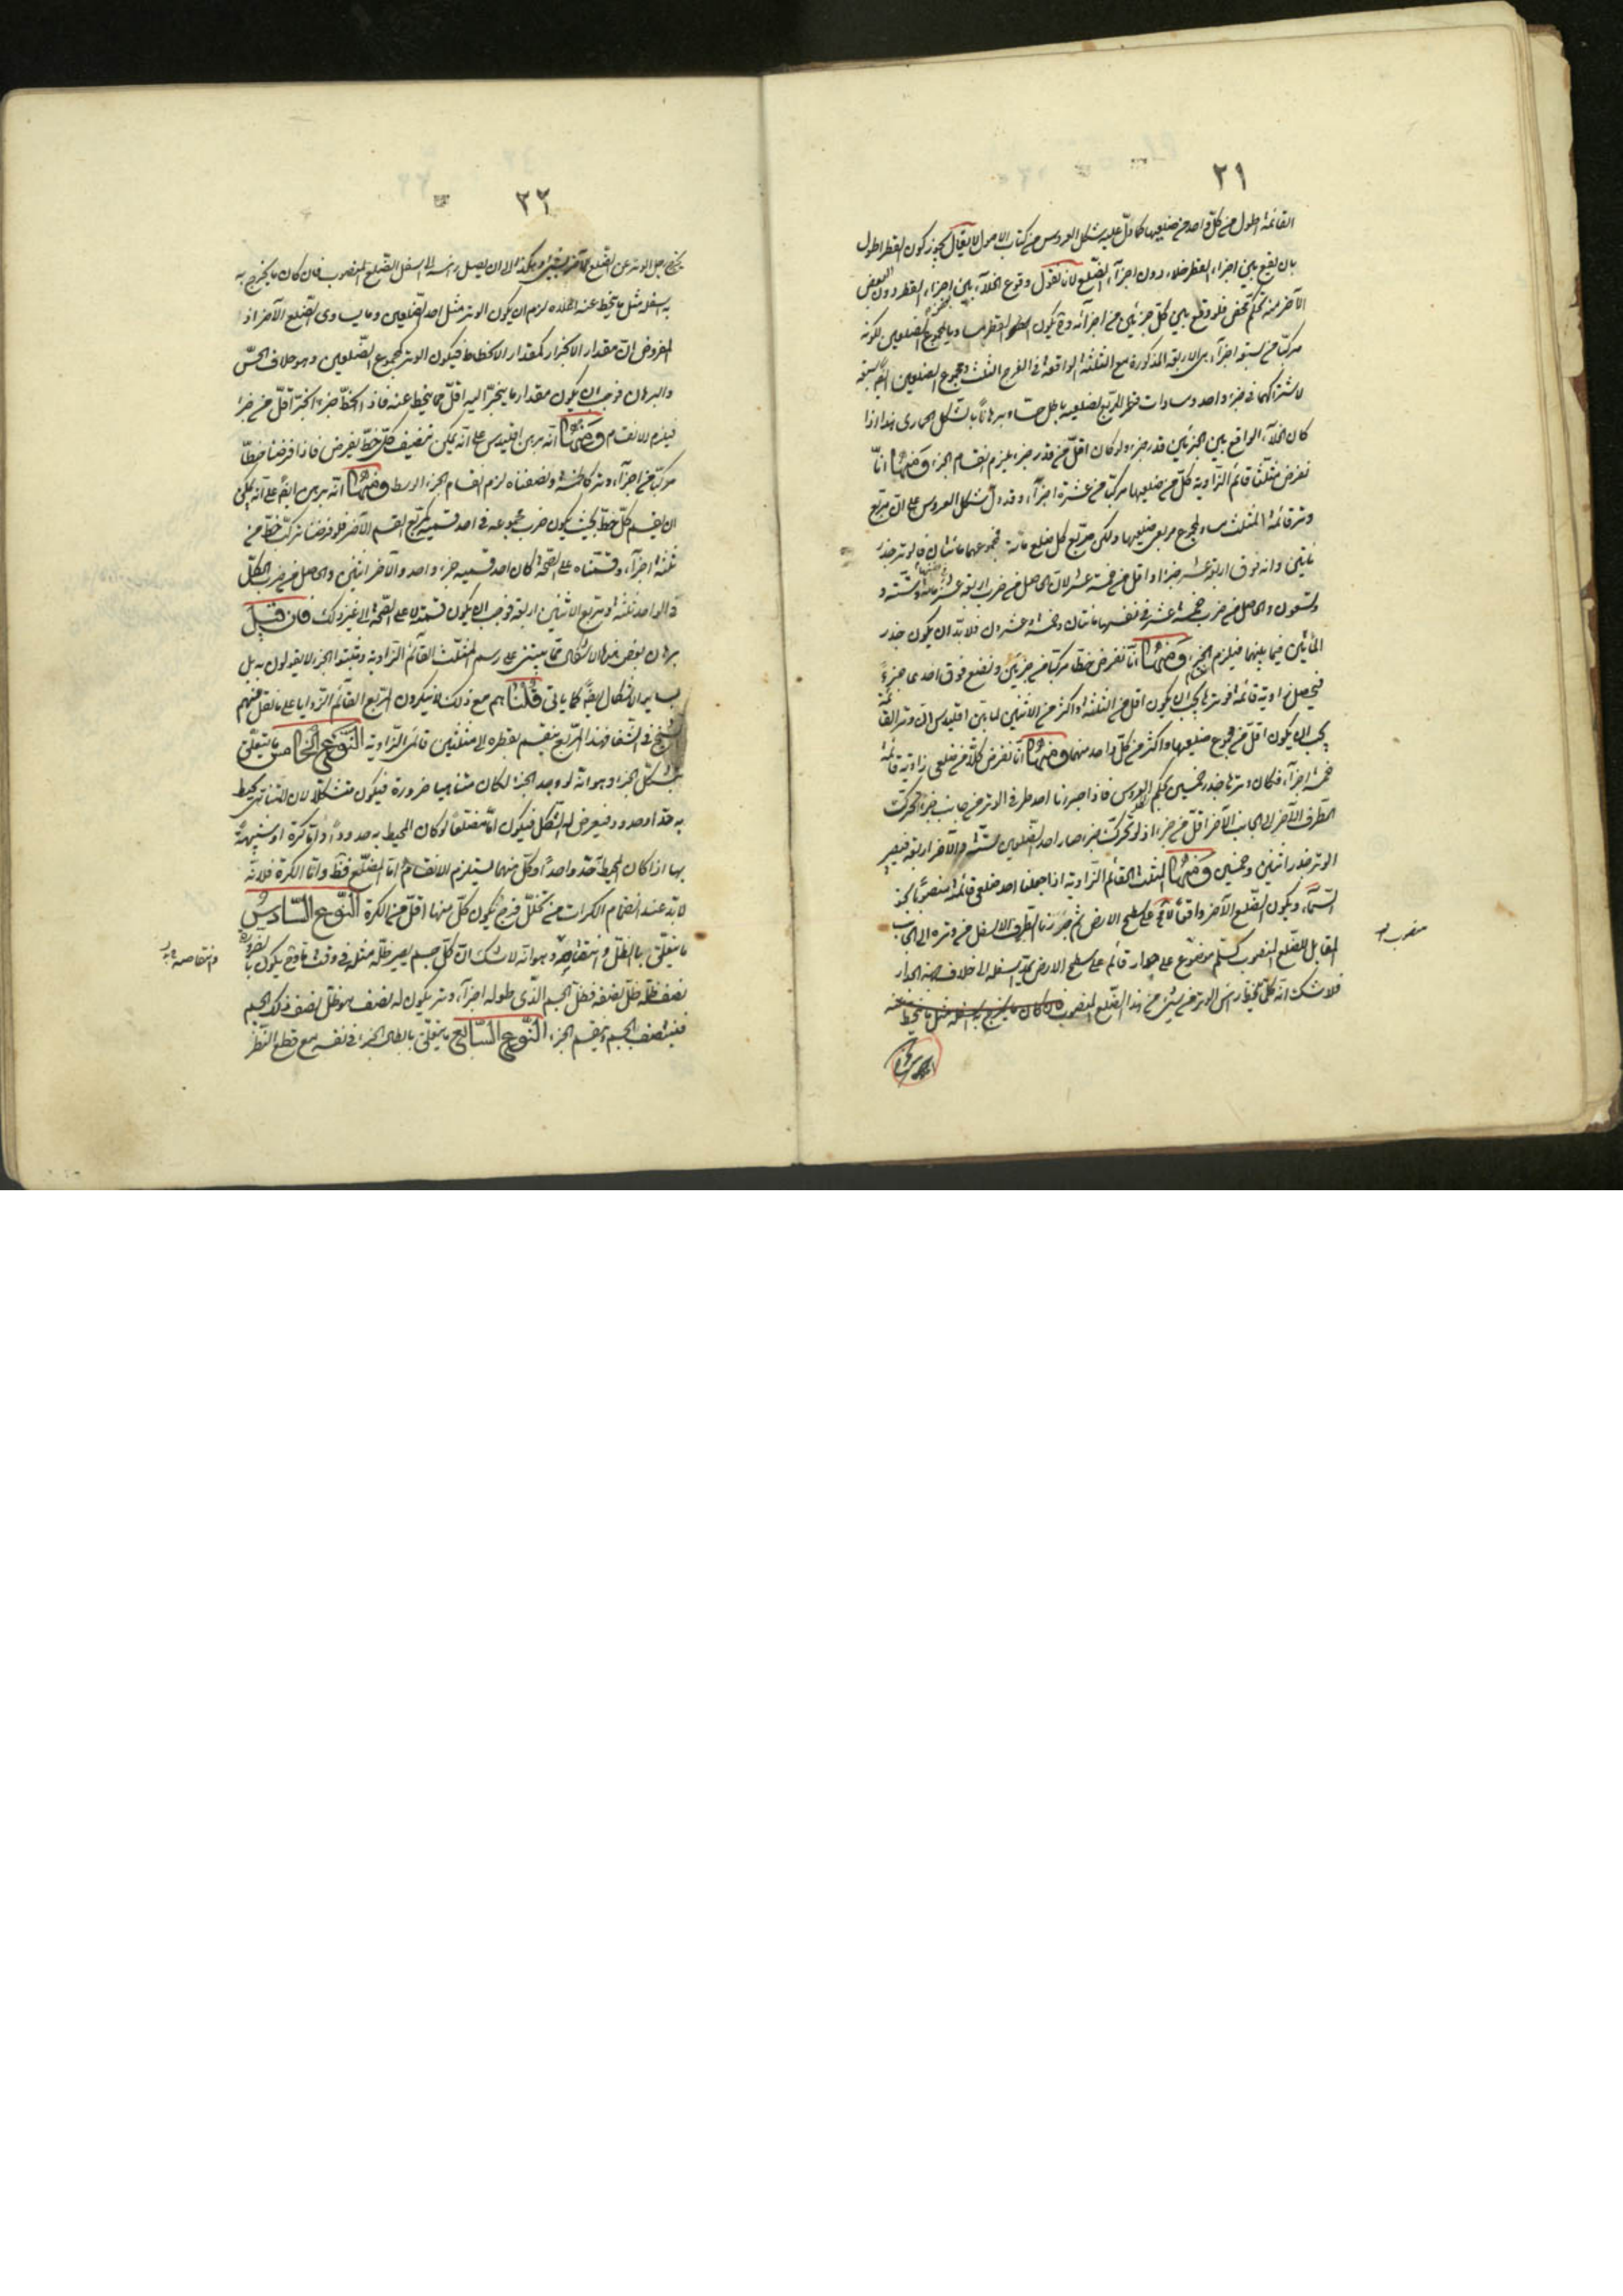 ٣١
القائمة اطول من كلّ واحد من ضلعيها كما دلّ عليه شكل العروس من كتاب الاصول لا يقال يجوز كون القطر اطول
بان يقع بين اجزاء القطر خلاء دون اجزآء الضّلع لانا نقول وقوع الخلآء بين اجزاء القطر دون البعض
الآخر منه تحكّم محض فلو وقع بين كلّ جزئين من اجزائه وح يكون القطر مساويا لمجموع الضلعين لكونه
مركّبا من سبعة اجزآء هى الاربعة المذكورة مع الثلثة الواقعة فى الفرج الثلث ومجموع الضلعين ايضا سبعة
لاشتراكهما فى جزء واحد ومساوات قطر المربّع لضلعيه باطل حسّا وبرهانا بالشكل الحمارى هذا اذا
كان الخلآء الواقع بين الجزئين قدر جزء ولو كان اقلّ من قدر جزء يلزم انقسام الجزء ومنها انّا
نفرض مثلّثا قائم الزّاوية كلّ من ضلعيها مركّب من عشرة اجزآء وقد دلّ شكل العروس على ان مربّع
وتر قائمة المثلث مساو لمجموع مربعى ضلعيها ولكن مربّع كل ضلع مائة فمجموعهما مائتان فالوتر جذر
مائتين وانه فوق اربعة عشر جزءا واقل من خمسة عشر لان الحاصل من ضرب اربعة عشر فى نفسها مائة وستّة و
وتسعون والحاصل من ضرب خمسة عشر فى نفسها مائتان وخمسة وعشرون فلا بدّ ان يكون جذر
المائتين فيما بينهما فيلزم التجزّى ومنها انّا نفرض خطّا مركّبا من جزئين ونضع فوق احدى جزءً
فيحصل زاوية قائمة فوترها يجب ان يكون اقل من الثلثة واكثر من الاثنين لما بيّن اقليدس انّ وتر القائمة
يجب ان يكون اقلّ من مجموع ضلعيها واكثر من كلّ واحد منهما ومنها انّا نفرض كلّا من ضلعى زاوية قائمة
خمسة اجزآء فكان وترها جذر خمسين بحكم العروس فاذا جررنا احد طرفى الوتر من جانب جزءا تحركّ
الطّرف الآخر الى الجانب الآخر اقلّ من جزء اذ لو تحركّ جزء صار احد الضّلعين ستّة والآخر اربعة فيصير
الوتر جذر اثنين وخمسين ومنها المثلث القائم الزّاوية اذا جعلنا احد ضلعى قائمة منصوبا نحو
السّمآء ويكون الضّلع الآخر واقعا على سطح الارض ثم جررنا الطرف الاسفل من وتره الى الجانب
المقابل للضّلع المنصوب كسلّم موضوع على جدار قائم على سطح الارض يمدّ اسفله الى خلاف جهة الجدار
فلا شك انّه كلّما ينحطّ رأس الوتر من شئ من هذا الضّلع المنصوب
٣٢
به اسفله مثل ما ينحط عنه اعلاه لزم ان يكون الوتر مثل احد الضّلعين وما يساوى الضّلع الآخر اذ
المفروض انّ مقدار الانجرار كمقدار الانحطاط فيكون الوتر كمجموع الضّلعين وهو خلاف الحسّ
والبرهان فوجب ان يكون مقدار ما ينجرّ اليه اقلّ مما ينحط عنه فاذا انحطّ جزءا انجرّ اقلّ من جزء
فيلزم الانقسام ومنها انّه برهن اقليدس على انّه يمكن تنصيف كلّ خطّ يفرض فاذا فرضنا خطّا
مركّبا من اجزآء وتر كالخمسة ونصفناه لزم انقسام الجزء الوسط ومنها انّه برهن ايضا على انّه يمكن
ان ينقسم كلّ خطّ بحيث يكون ضرب مجموعه فى احد قسميه كمربّع القسم الآخر فلو فرضنا تركّب خطّ من
ثلثة اجزآء وقسّمناه على الصّحة كان احد قسميه جزء واحد والآخر اثنين والحاصل من ضرب الكلّ
فى الواحد ثلثة ومربّع الاثنين اربعة فوجب ان يكون قسمته لا على الصّحة الى غير ذلك فان قيل
برهان بعض هذه الاشكال ممّا يبتنى على رسم المثلّث القآئم الزّاوية ومثبتوا الجزء لا يقولون به بل
بسائر الاشكال ايضا كما يأتى قلنا هم مع ذلك لا ينكرون المربّع القآئم الزّوايا على ما نقل عنهم
الشيخ فى الشّفا فهذا المربّع ينقسم بقطره الى مثلثين قائمى الزّاوية النّوع الخامس ما يتعلّق
بشكل الجزء وهو انّه لو وجد الجزء لكان متناهيا ضرورة فيكون متشكّلا لان المتناهى يحيط
به حدّ او حدود فيعرض له الشّكل فيكون امّا مضلّعا لو كان المحيط به حدودا وامّا كرة او شبيهةً
بها اذا كان المحيط حدّا واحدا وكلّ منهما يستلزم الانقسام امّا المضلّع فظّ وامّا الكرة فلانّه
لا بدّ عند انضمام الكرات من تخلّل فرج يكون كلّ منها اقلّ من الكرة النّوع السّادس
ما يتعلّق بالظلّ وانتقاصه وهو انّه لا شكّ انّ كلّ جسم يصير ظلّه مثليه فى وقت ما وح يكون بالضرورة
نصف ظلّه ظلّ نصفه فظلّ الجسم الّذى طوله اجزآء وتر يكون له نصف هو ظلّ نصف ذلك الجسم
فينتصف الجسم وينقسم الجزء النّوع السّابع ما يتعلّق بابطال الجزء فى نفسه مع قطع النّظر